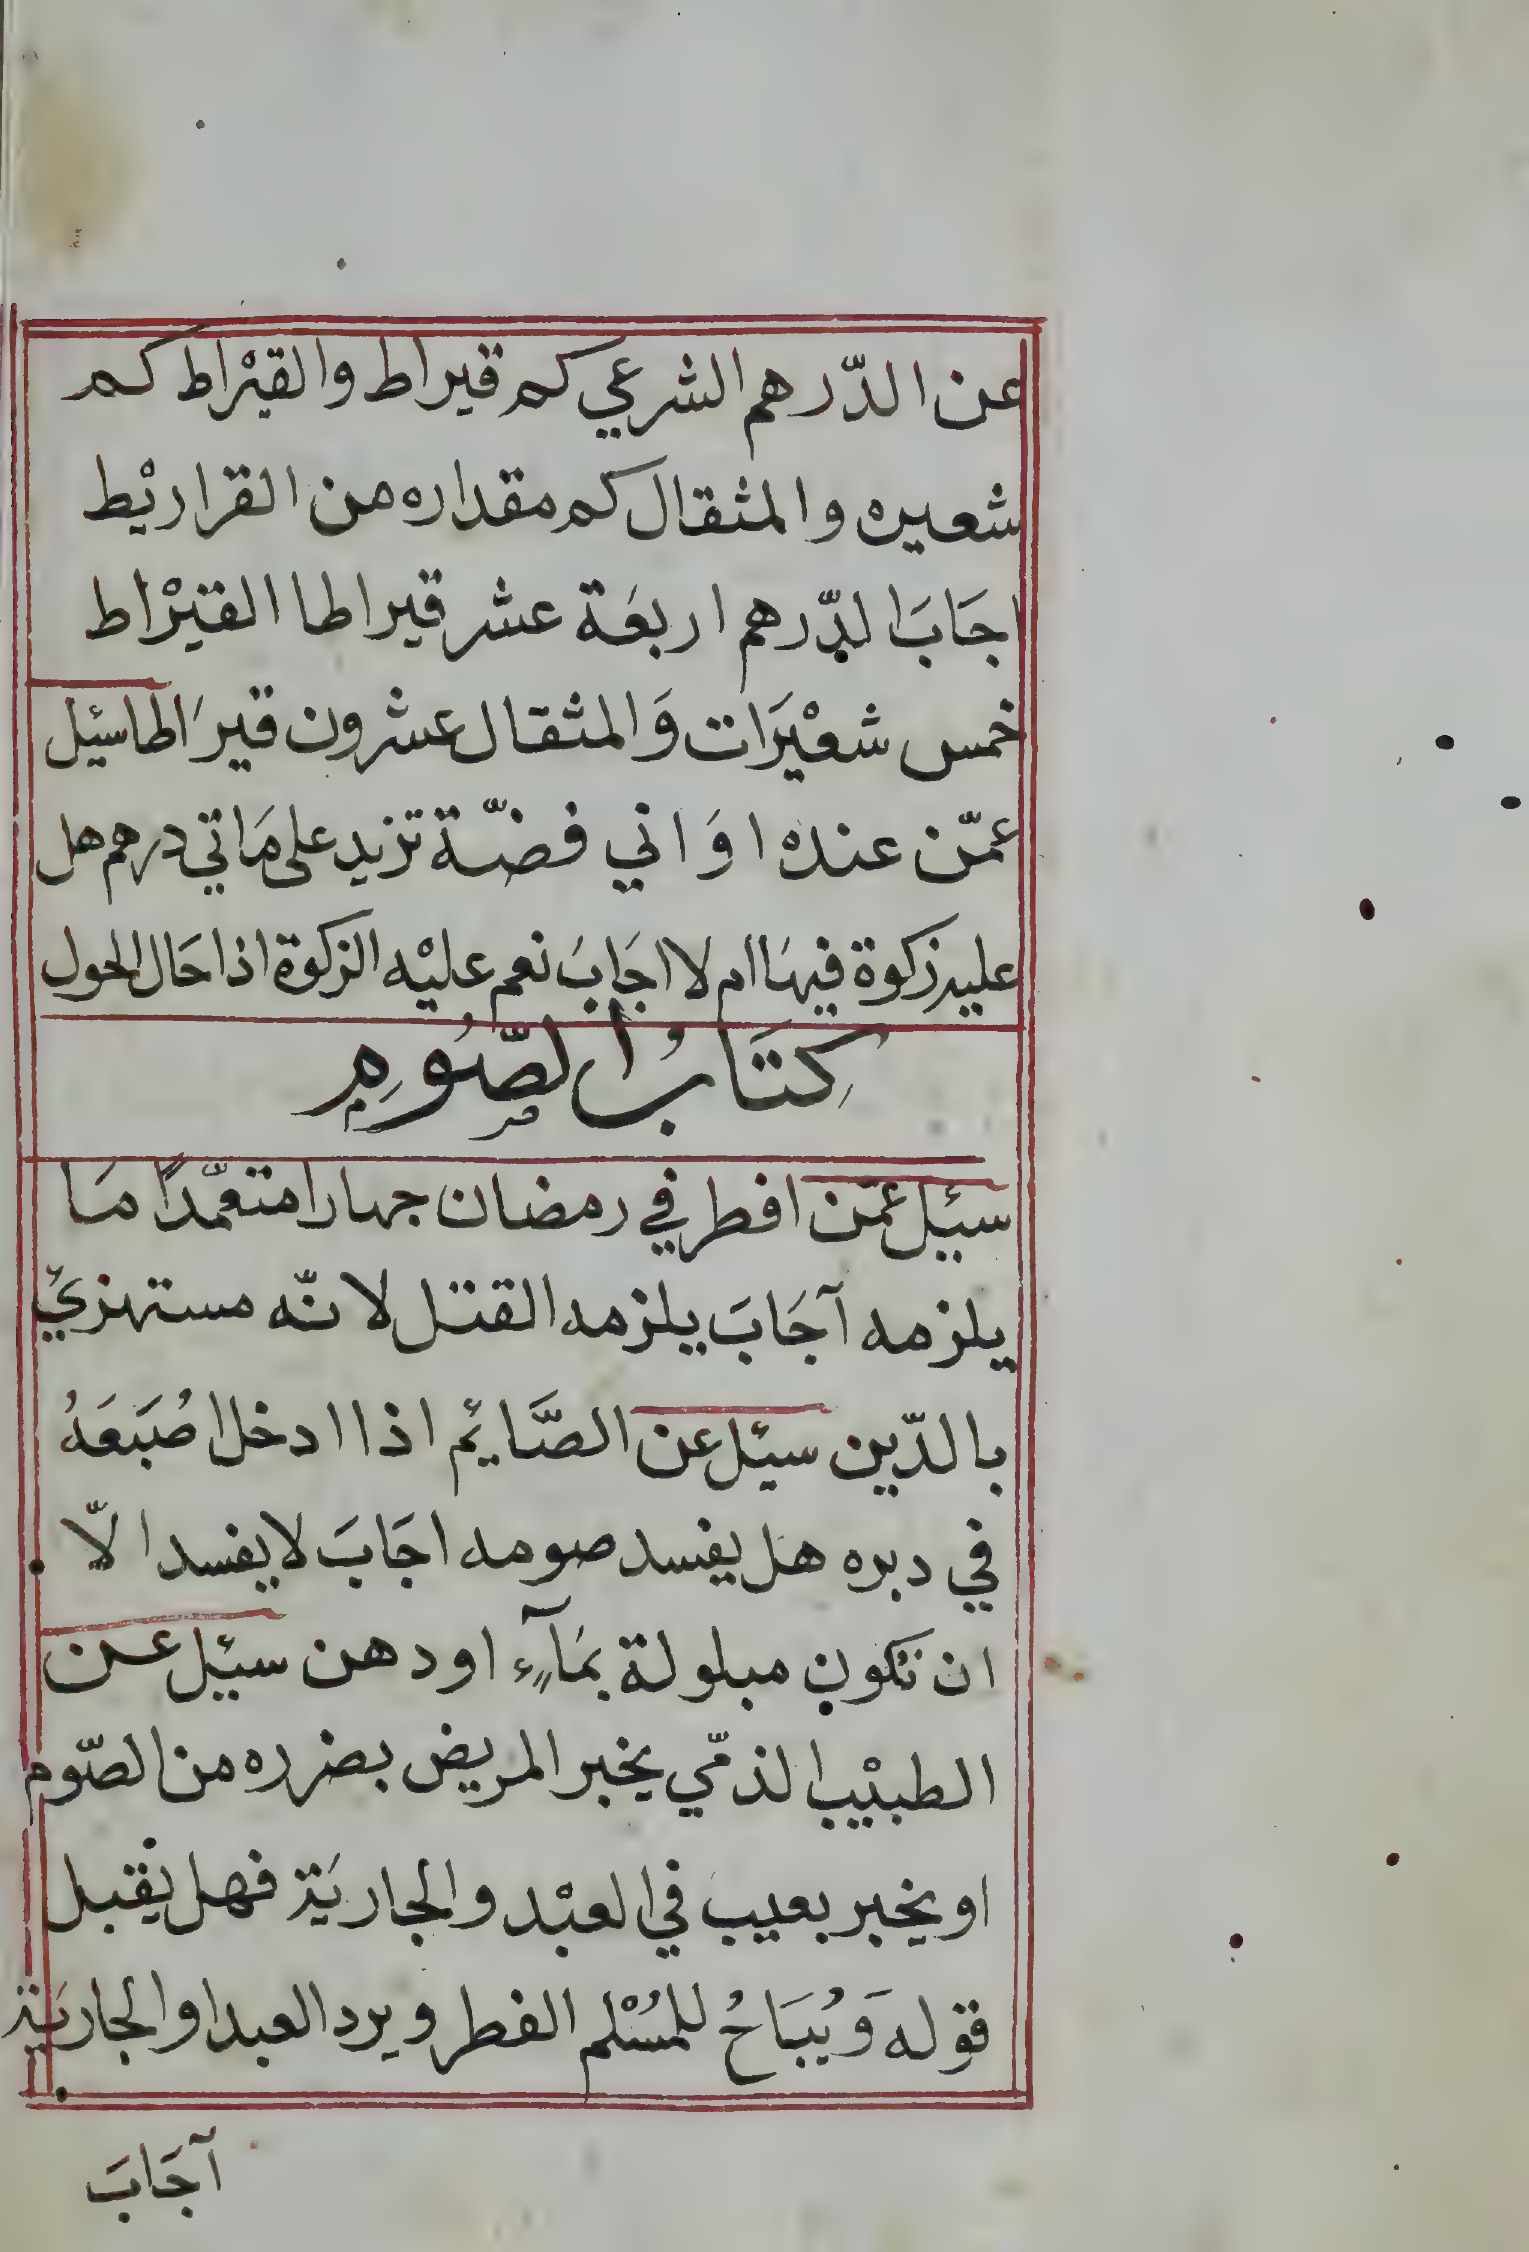 عن الدّرهم الشرعي كم قيراط والقيْراط كم
شعيره والمثقال كم مقداره من القراريْط
اجَابَ الدّرهم اربعَة عشر قيراطا القيْراط
خمس شعيْرَات وَالمثقال عشرون قيرَاطا سئيل
عمّن عنده اوَاني فضّة تزيد على مَاتي درهم هل
عليه زكوة فيهَا ام لا اجَابَ نعم عليْه الزكوة اذا حَال الحول
كِتَابُ الصَّوْمِ
سئيل عمّن افطر في رمضان جهارا متعمّدًا مَا
يلزمه آجَابَ يلزمه القتل لانّه مستهزئ
بالدّين سئيل عن الصَّايم اذا ادخل اصُبَعَهُ
في دبره هل يفسد صومه اجَابَ لا يفسد الّا
ان تكون مبلولة بمَآءٍ او دهن سئيل عن
الطبيْب الذمّي يخبر المريض بضرره من الصّوم
او يخبر بعيب في العبْد والجاريَة فهل يقبل
قوله وَيُبَاحُ للمُسْلم الفطر ويرد العبد او الجاريَة
آجَابَ